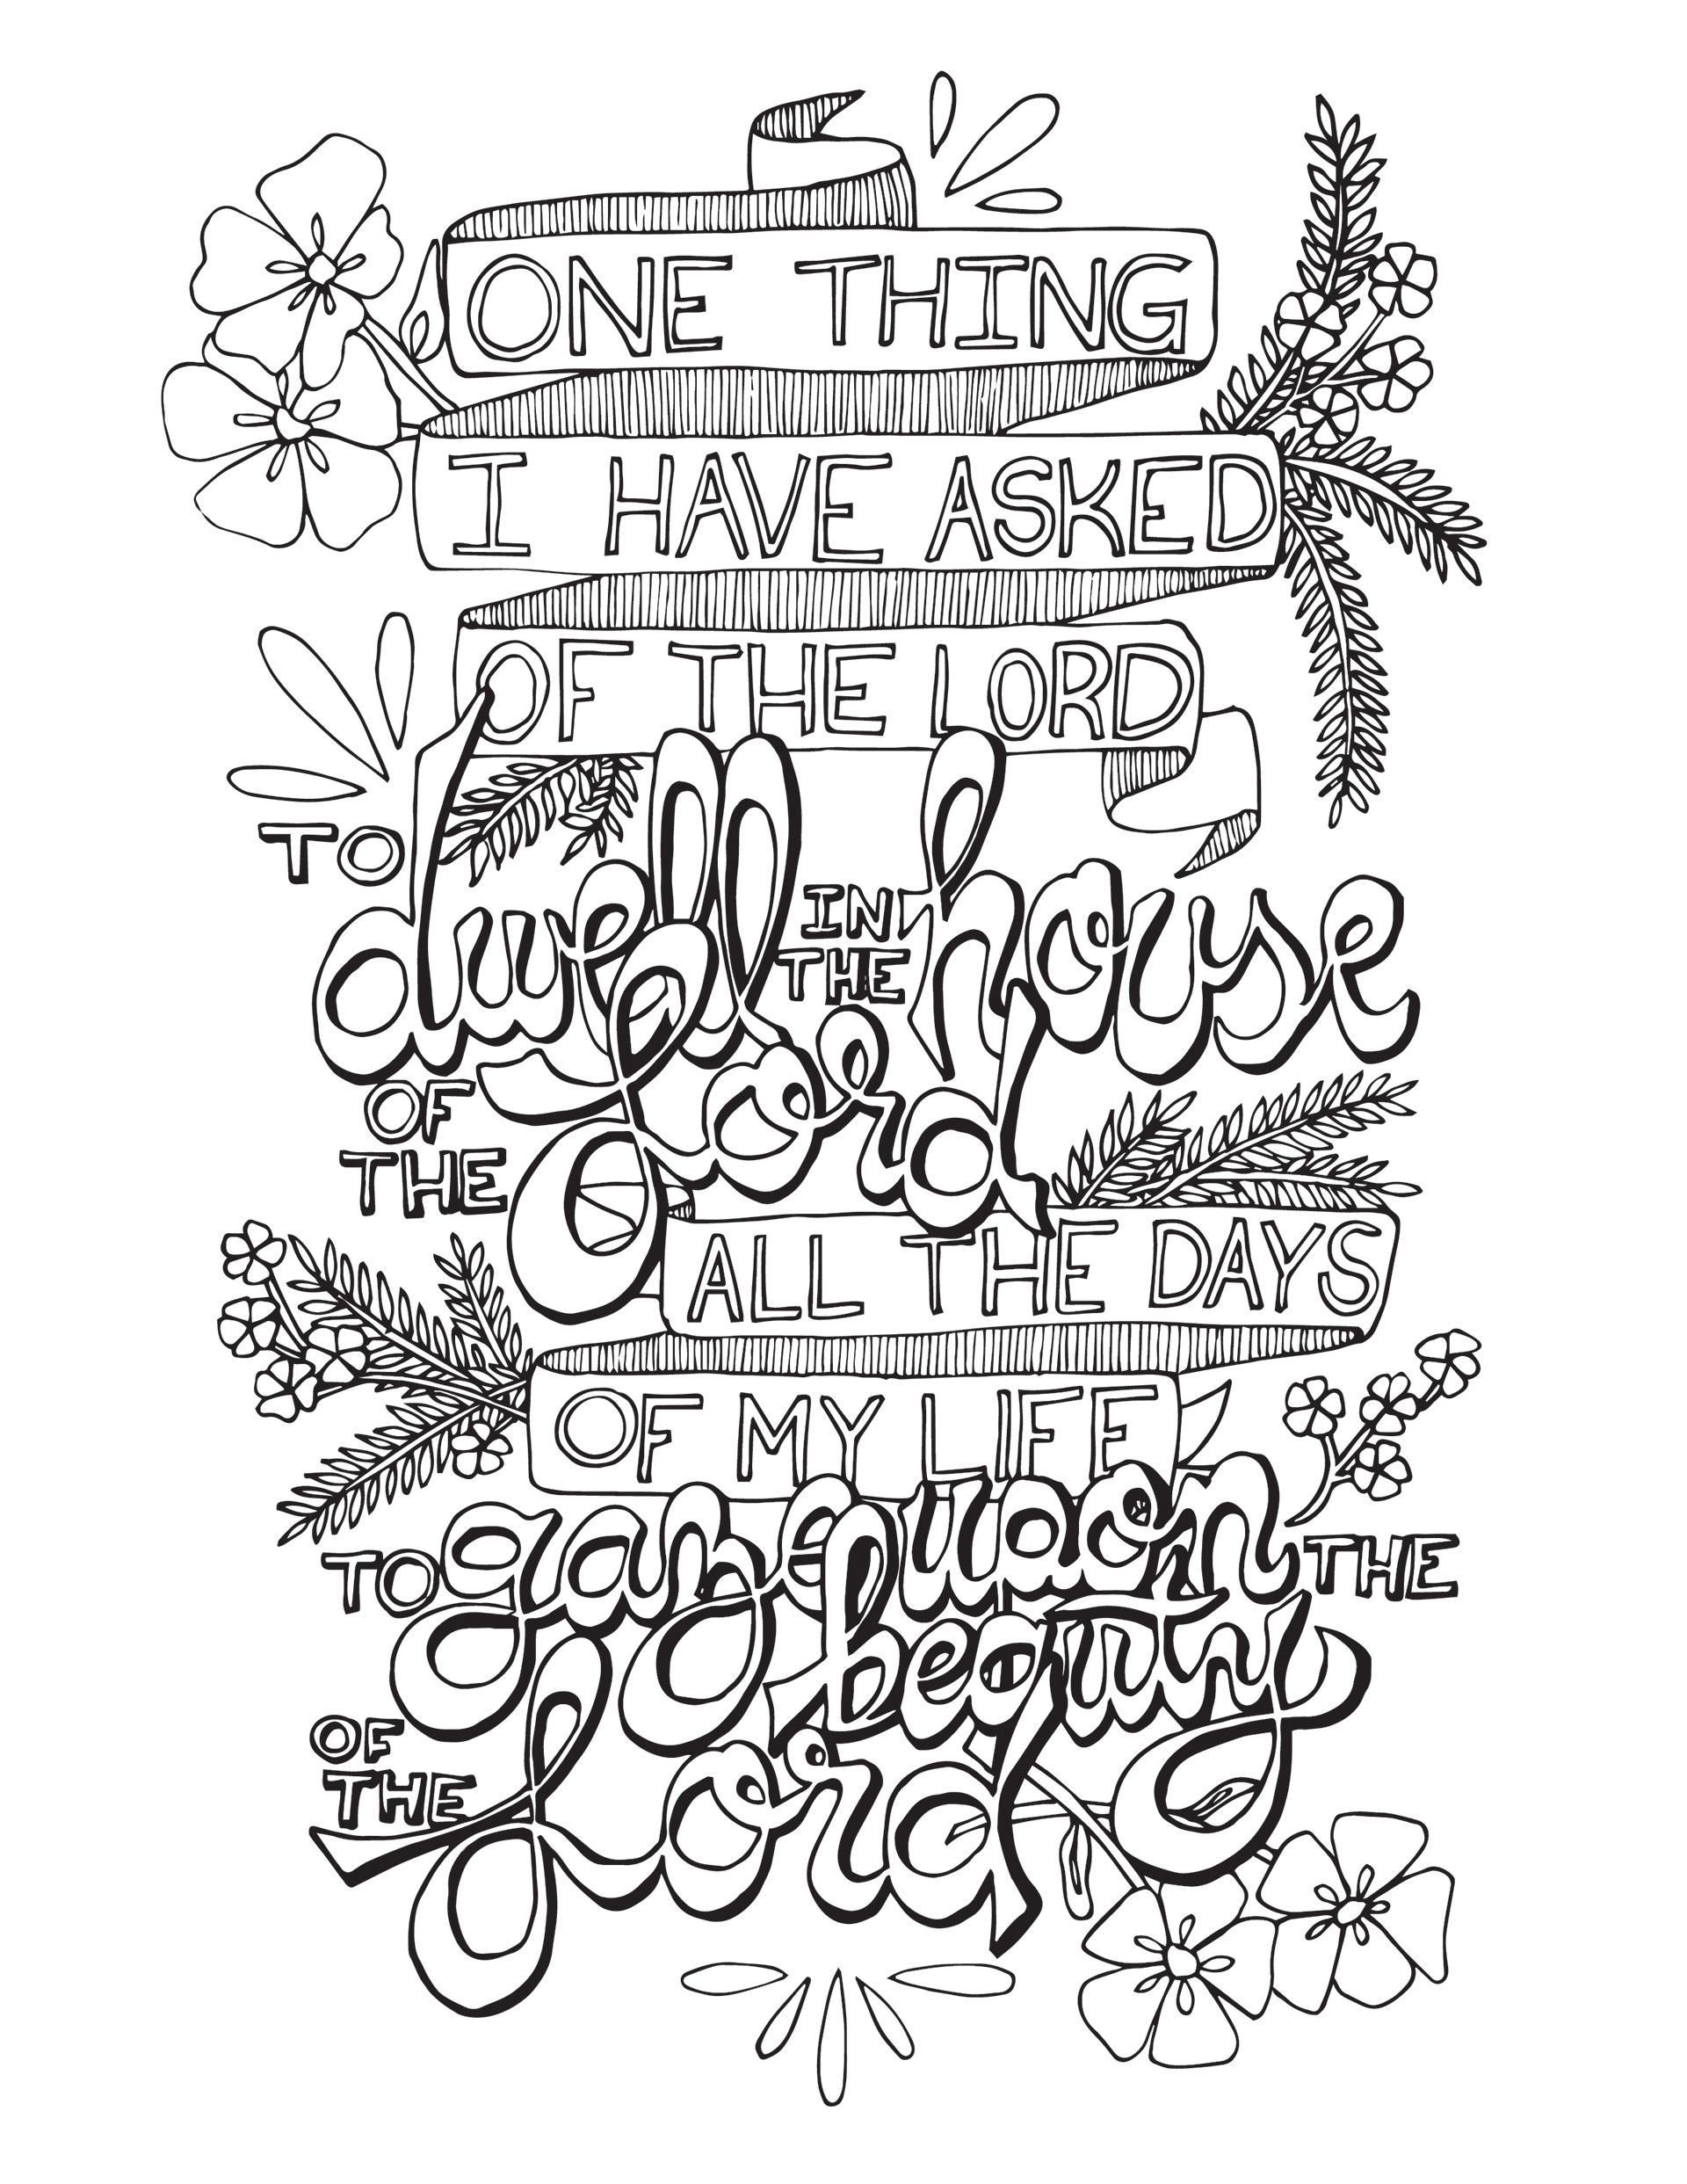 ONE THING
I HAVE ASKED
OF THE LORD
TO dwell IN THE house
OF THE Lord
ALL THE DAYS
OF MY LIFE
TO gaze upon THE
beauty
OF THE Lord